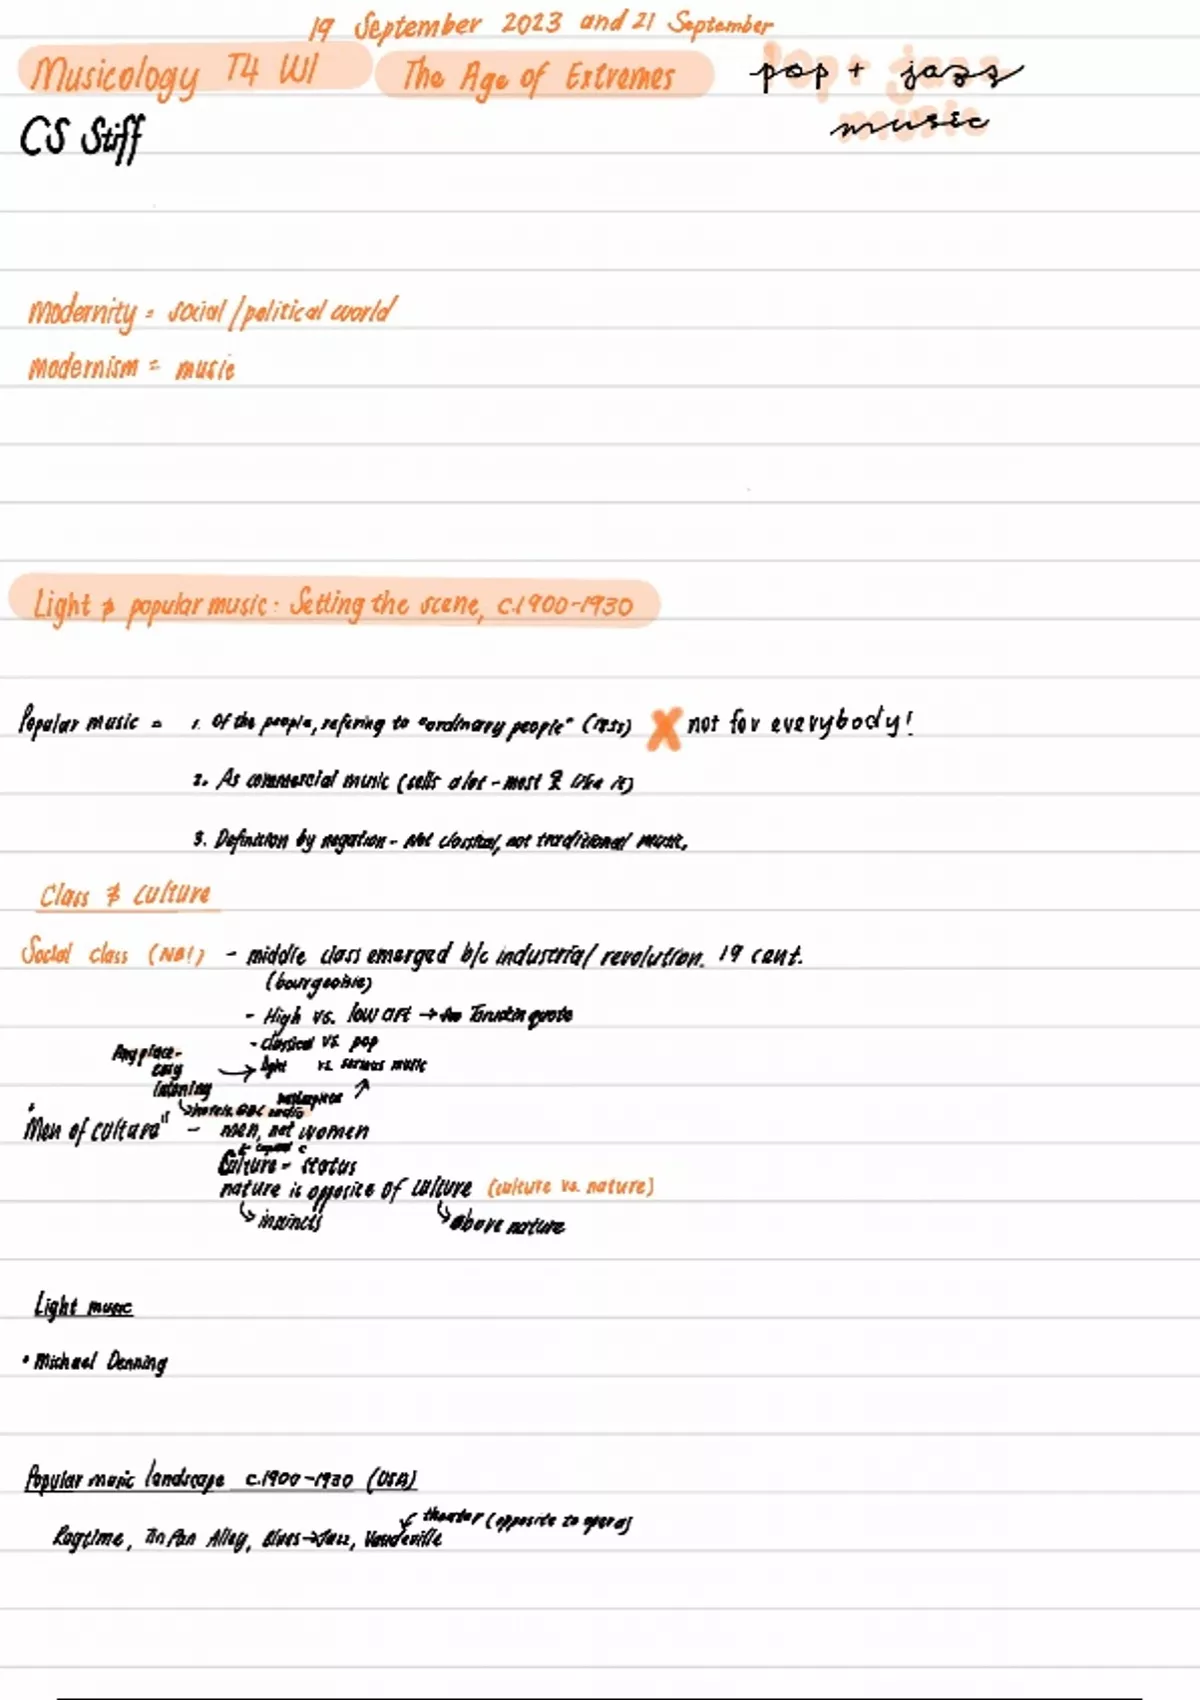 19 September 2023 and 21 September
Musicology T4 W1 The Age of Extremes pop + jazz
music
CS Stiff
modernity = social/political world
modernism = music
Light & popular music: Setting the scene, c.1900-1930
Popular music = 1. Of the people, refering to "ordinary people" (1855) X not for everybody!
2. As commercial music (sells a lot - most like it)
3. Definition by negation - Not classical, not traditional music.
Class & culture
Social class (NB!) - middle class emerged b/c industrial revolution. 19 cent.
(bourgeoisie)
- High vs. low art → Taruskin quote
- classical vs. pop
Any place-
easy → light vs. serious music
listening masterpieces ↗
↳ hotels, BBC radio
"Men of cultura" - men, not women
Culture - status
nature is opposite of culture (culture vs. nature)
↳ instincts ↳ above nature
Light music
• Michael Denning
Popular music landscape c.1900-1930 (USA)
↙ theater (opposite to opera)
Ragtime, Tin Pan Alley, Blues→Jazz, Vaudeville